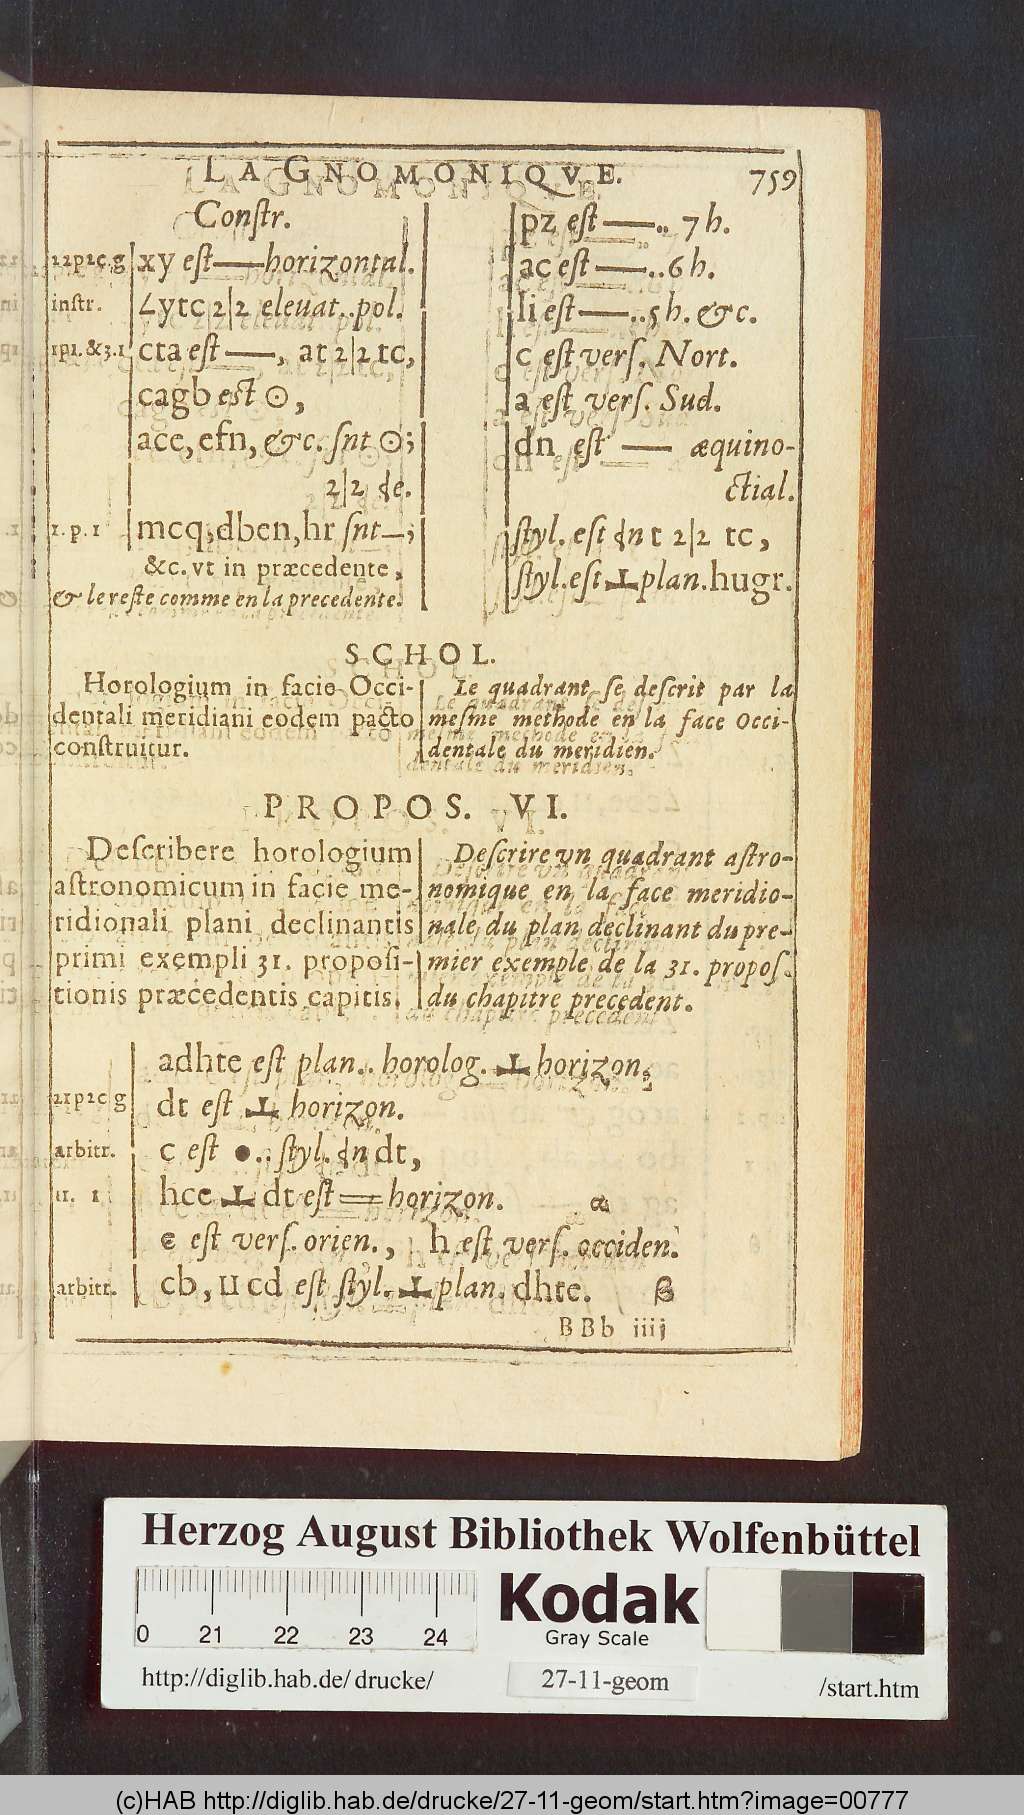 LA GNOMONIQVE. 759
Constr.
12p2c.g xy est — horizontal.
instr. ∠ytc 2|2 elevat..pol.
1p1.&3.1 cta est —, at 2|2 tc,
cagb est ⊙,
ace, efn, &c. snt ⊙;
2|2 de.
1.p.1 mcq, dben, hr snt —;
&c. vt in præcedente,
& le reste comme en la precedente.
pz est —.. 7 h.
ac est —..6 h.
li est —..5 h. &c.
c est vers. Nort.
a est vers. Sud.
dn est — æquino-
ctial.
styl. est dnt 2|2 tc,
styl. est ⊥ plan. hugr.
SCHOL.
Horologium in facie Occi-
dentali meridiani eodem pacto
construitur.
Le quadrant se descrit par la
mesme methode en la face Occi-
dentale du meridien.
PROPOS. VI.
Describere horologium
astronomicum in facie me-
ridionali plani declinantis
primi exempli 31. proposi-
tionis præcedentis capitis.
Descrire vn quadrant astro-
nomique en la face meridio-
nale du plan declinant du pre-
mier exemple de la 31. propos.
du chapitre precedent.
adhte est plan.. horolog. ⊥ horizon;
21p2c g dt est ⊥ horizon.
arbitr. c est •.. styl. dn dt,
11. 1 hce ⊥ dt est = horizon. α
e est vers. orien., h est vers. occiden.
arbitr. cb, II cd est styl. ⊥ plan. dhte. β
BBb iiij
Herzog August Bibliothek Wolfenbüttel
Kodak
Gray Scale
0 21 22 23 24
http://diglib.hab.de/drucke/ 27-11-geom /start.htm
(c)HAB http://diglib.hab.de/drucke/27-11-geom/start.htm?image=00777